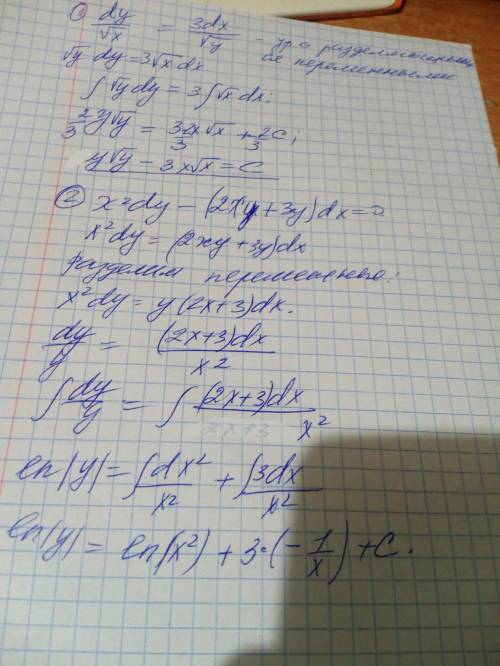 ① dy/√x = 3dx/√y – ур. с разделяющими
ся переменными
√y dy = 3√x dx
∫√y dy = 3∫√x dx;
2/3 y√y = 3·2/3 x√x + 2/3 C;
y√y – 3x√x = C
② x²dy – (2xy + 3y)dx = 0
x²dy = (2xy + 3y)dx
Разделим переменные:
x²dy = y(2x+3)dx.
dy/y = (2x+3)dx/x²
∫dy/y = ∫(2x+3)dx/x²
ln|y| = ∫dx²/x² + ∫3dx/x²
ln|y| = ln(x²) + 3·(–1/x) + C.